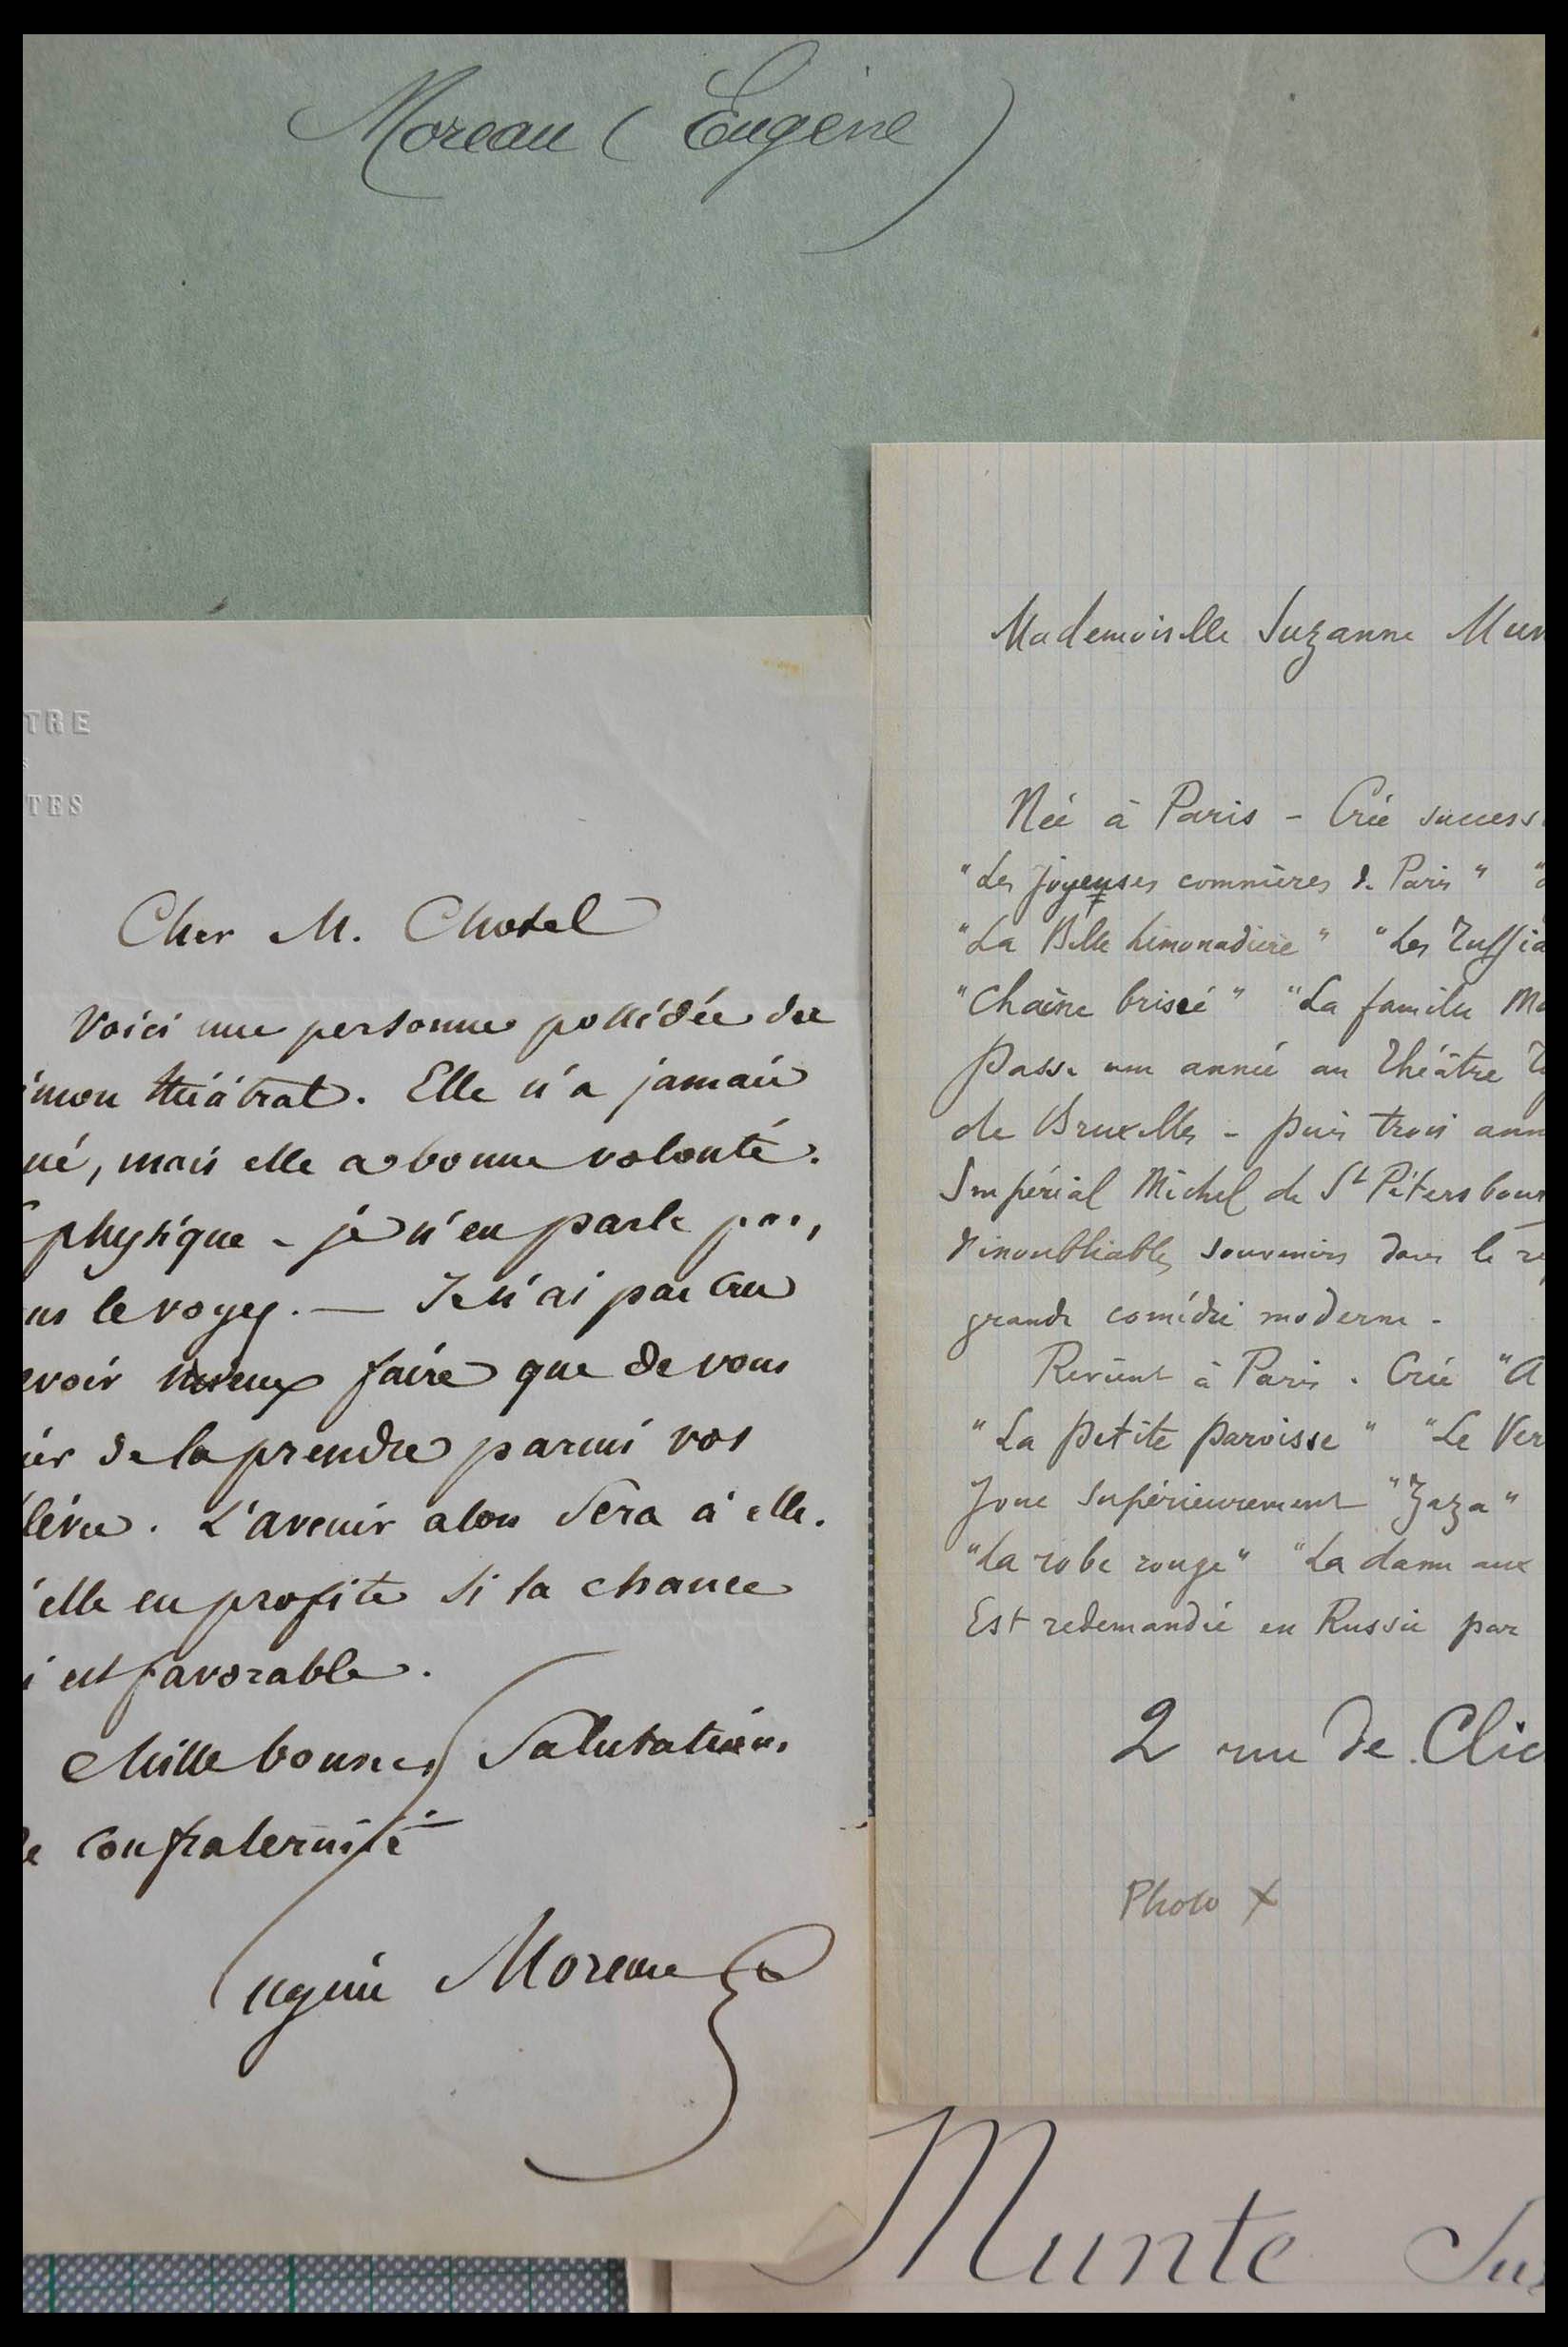 Moreau (Eugène)
TRE
TES
Cher M. Chotel
Voici une personne possédée du
émon théâtral. Elle n'a jamais
ué, mais elle a bonne volonté.
physique - je n'en parle pas,
us le voyez. — Je n'ai pas cru
avoir mieux faire que de vous
ier de la prendre parmi vos
lèves. L'avenir alors sera à elle.
'elle en profite si la chance
i est favorable.
Mille bonnes salutations
de confraternité
Eugène Moreau
Mademoiselle Suzanne Mun
Née à Paris - Crée success
"Les joyeuses commères de Paris"
"La Belle Limonadière" "Les Ruffia
"Chaîne brisée" "La famille Mo
Passe une année au Théâtre
de Bruxelles - puis trois ann
Impérial Michel de St Pétersbour
d'inoubliables souvenirs dans le ré
grande comédie moderne -
Revient à Paris. Crée "A
"La petite paroisse" "Le Ver
Joue supérieurement "Zaza"
"La robe rouge" "La dame aux
Est redemandée en Russie par
2 rue de Clic
Photo X
Munte Suz